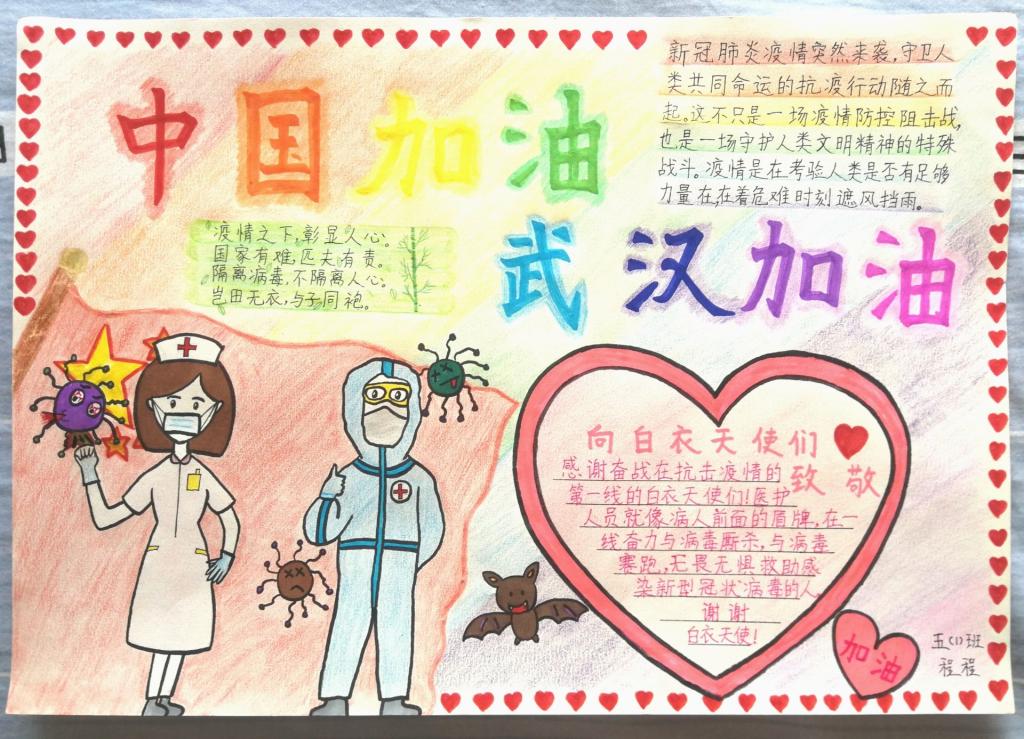 中国加油
新冠肺炎疫情突然来袭,守卫人
类共同命运的抗疫行动随之而
起。这不只是一场疫情防控阻击战,
也是一场守护人类文明精神的特殊
战斗。疫情是在考验人类是否有足够
力量在,在着危难时刻遮风挡雨。
疫情之下,彰显人心。
国家有难,匹夫有责。
隔离病毒,不隔离人心。
岂曰无衣,与子同袍。
武汉加油
向白衣天使们
致敬
感谢奋战在抗击疫情的
第一线的白衣天使们!医护
人员就像病人前面的盾牌,在一
线奋力与病毒厮杀,与病毒
赛跑,无畏无惧救助感
染新型冠状病毒的人,
谢谢
白衣天使!
加油
五(1)班
程程